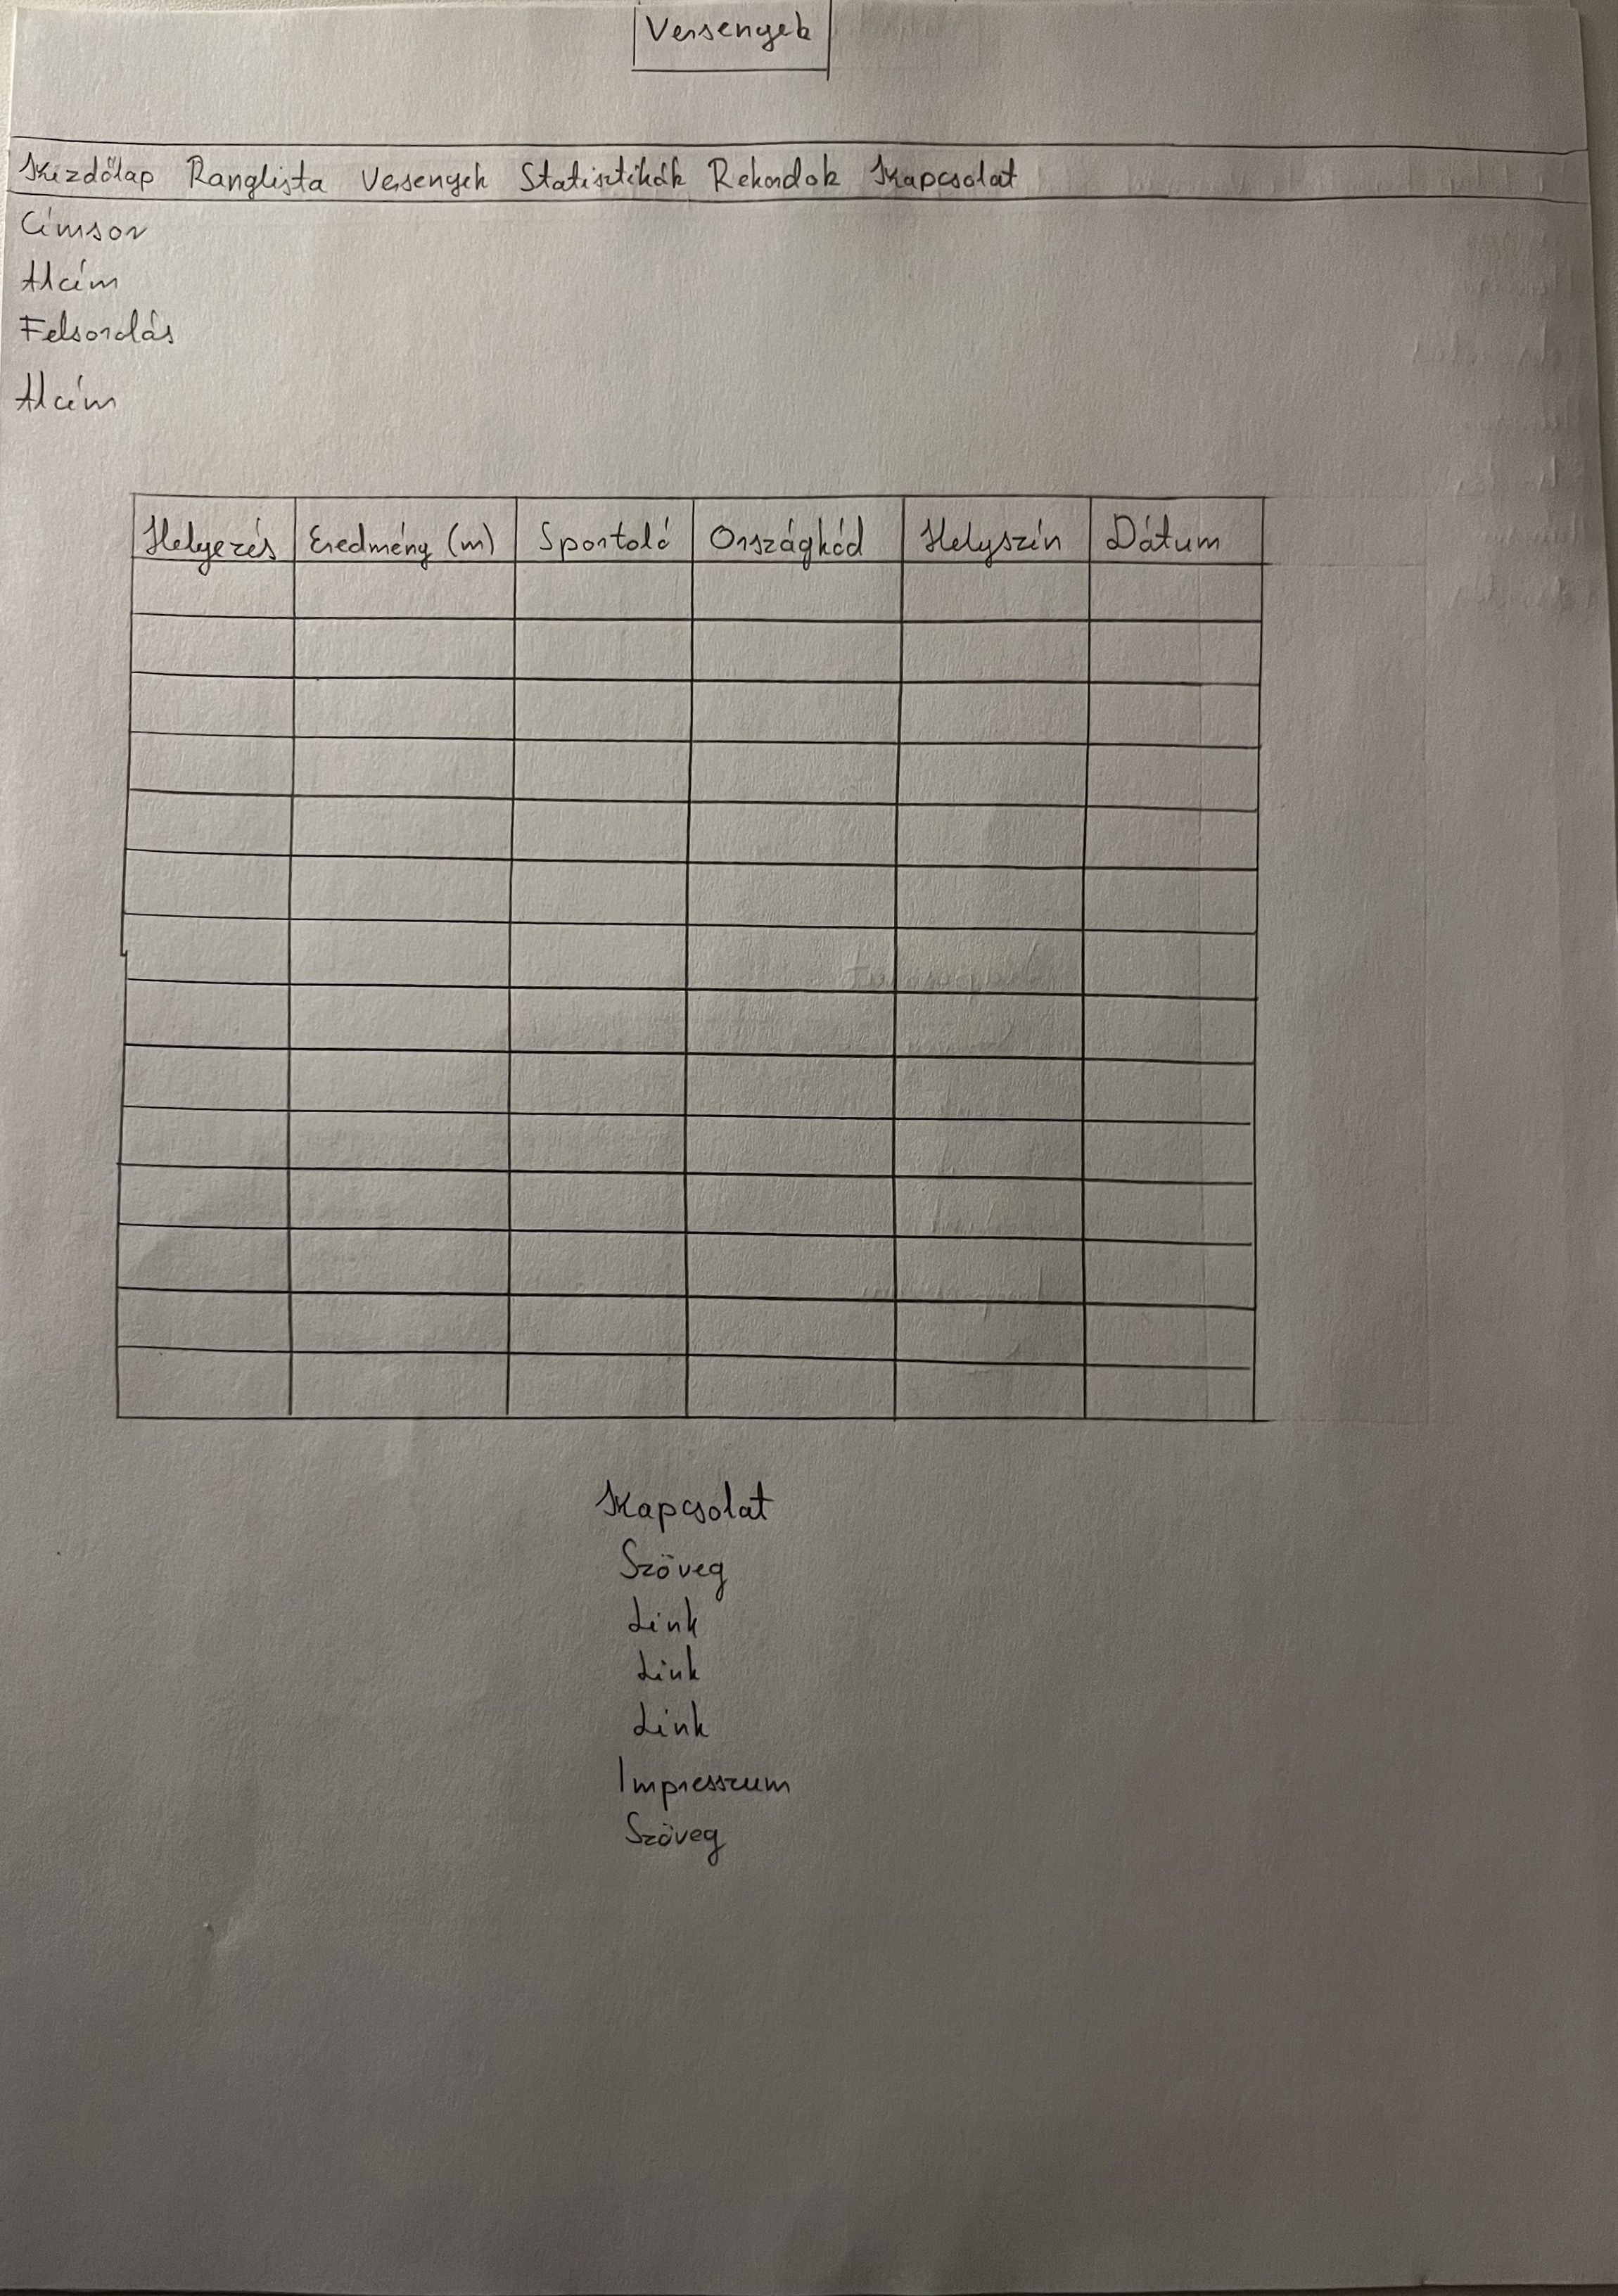 Versenyek
Kezdőlap Ranglista Versenyek Statisztikák Rekordok Kapcsolat
Címsor
Alcím
Felsorolás
Alcím
Helyezés Eredmény (m) Sportoló Országkód Helyszín Dátum
Kapcsolat
Szöveg
Link
Link
Link
Impresszum
Szöveg